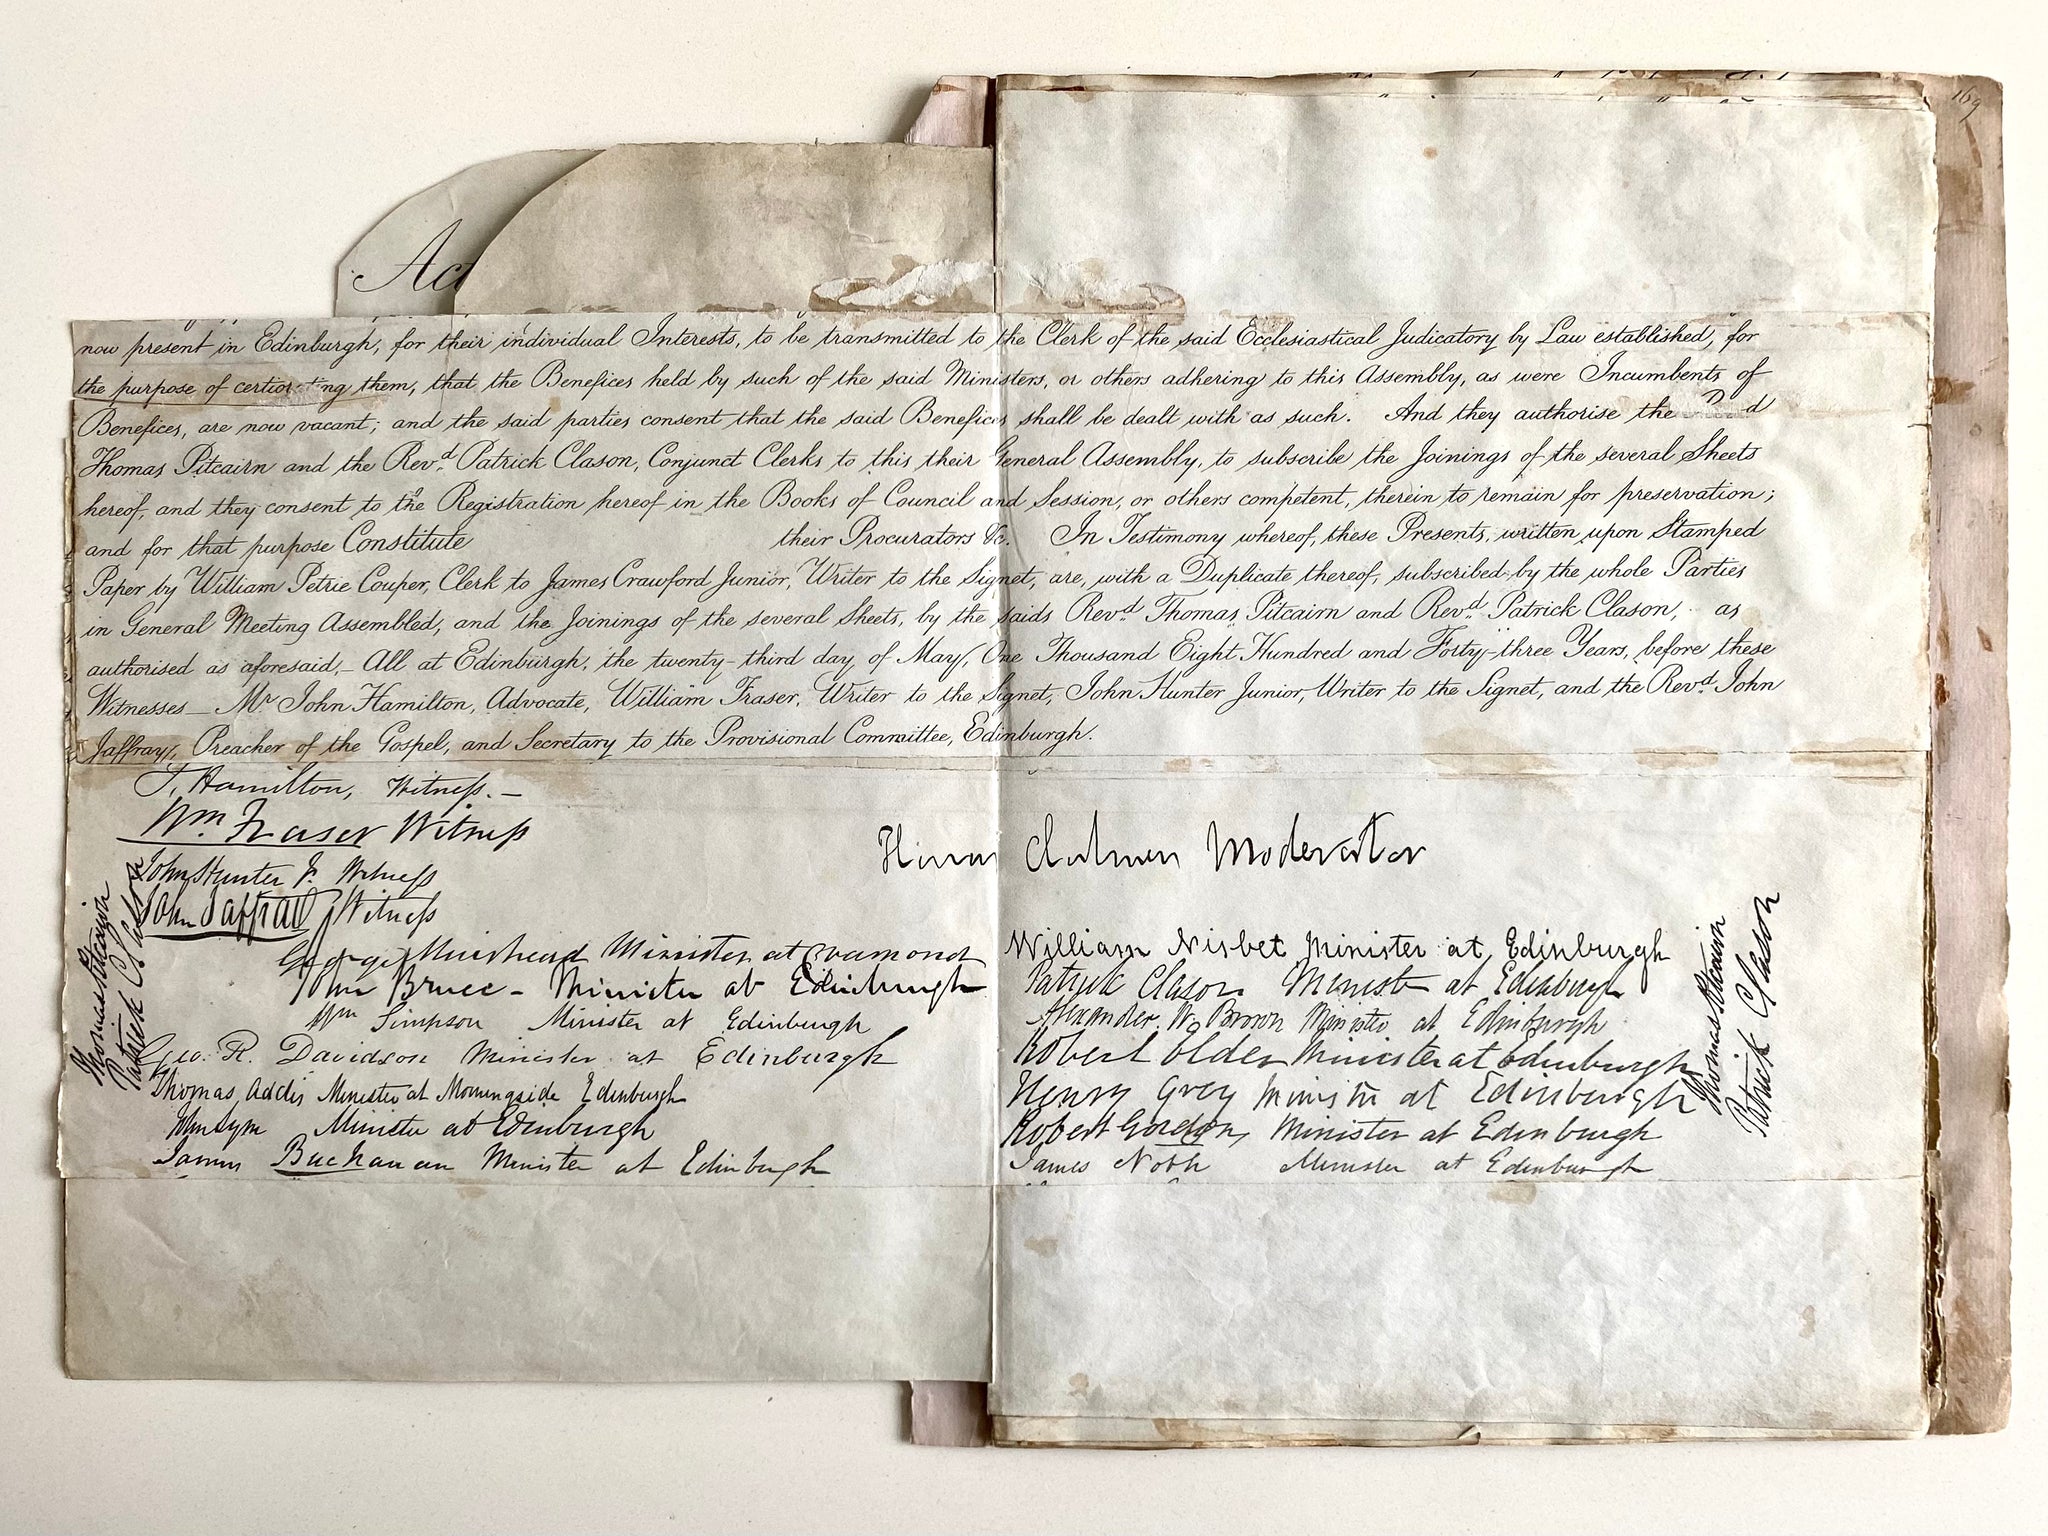 169
Act
now present in Edinburgh, for their individual Interests, to be transmitted to the Clerk of the said Ecclesiastical Judicatory by Law established, for
the purpose of certiorating them, that the Benefices held by such of the said Ministers, or others adhering to this Assembly, as were Incumbents of
Benefices, are now vacant; and the said parties consent that the said Benefices shall be dealt with as such. And they authorise the
Thomas Pitcairn and the Revd. Patrick Clason, Conjunct Clerks to this their General Assembly, to subscribe the Joinings of the several Sheets
hereof, and they consent to the Registration hereof in the Books of Council and Session, or others competent, therein to remain for preservation;
and for that purpose Constitute their Procurators &c. In Testimony whereof, these Presents, written upon Stamped
Paper by William Petrie Couper, Clerk to James Crawford Junior, Writer to the Signet, are, with a Duplicate thereof, subscribed by the whole Parties
in General Meeting Assembled, and the Joinings of the several Sheets, by the saids Revd. Thomas Pitcairn and Revd. Patrick Clason, as
authorised as aforesaid,– All at Edinburgh, the twenty-third day of May, One Thousand Eight Hundred and Forty-three Years, before these
Witnesses – Mr John Hamilton, Advocate, William Fraser, Writer to the Signet, John Hunter Junior, Writer to the Signet, and the Revd. John
Jaffray, Preacher of the Gospel, and Secretary to the Provisional Committee, Edinburgh.
J. Hamilton, Witness. –
Wm. Fraser Witness
John Hunter Jr. Witness
John Jaffray Witness
Thomas Pitcairn
Patrick Clason
George Muirhead Minister at Cramond
John Bruce – Minister at Edinburgh
Wm Simpson Minister at Edinburgh
Geo. R. Davidson Minister at Edinburgh
Thomas Addis Minister at Morningside Edinburgh
Minister at Edinburgh
James Buchanan Minister at Edinburgh
Chalmers Moderator
William Nisbet Minister at Edinburgh
Patrick Clason Minister at Edinburgh
Alexander W. Brown Minister at Edinburgh
Robert Elder Minister at Edinburgh
Henry Grey Minister at Edinburgh
Robert Gordon, Minister at Edinburgh
James Minister at Edinburgh
Thomas Pitcairn
Patrick Clason